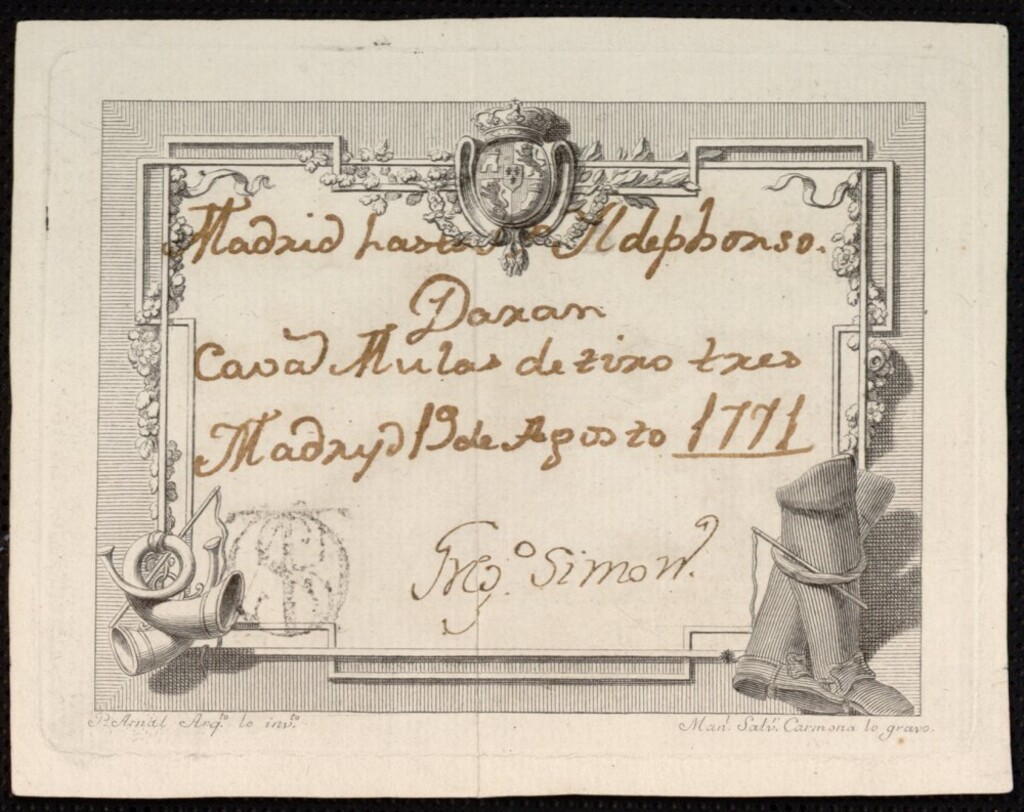 Madrid hasta Yldephonso.
Daran
Cavd Mulas de tiro tres
Madryd 19 de Agosto 1771
Simon.
P. Arnal Arq.to lo inv.to
Man.l Salv.r Carmona lo gravo.